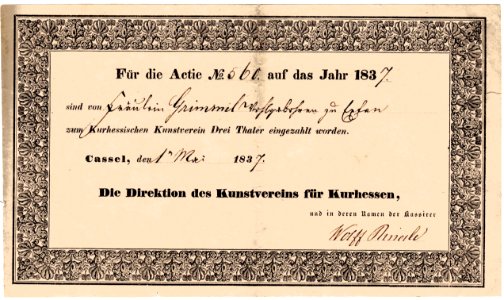 Für die Actie № 560. auf das Jahr 1837.
sind von Fräulein Grimmel Wohlgeboren zu
zum Kurhessischen Kunstverein Drei Thaler eingezahlt worden.
Cassel, den 1n Mai 1837.
Die Direktion des Kunstvereins für Kurhessen,
und in deren Namen der Kassirer
Wolff